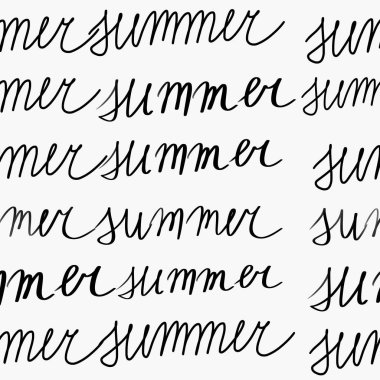 mer summer sum
mer summer summ
mer summer sum
mer summer sum
mmer summer sum
mer summer sum